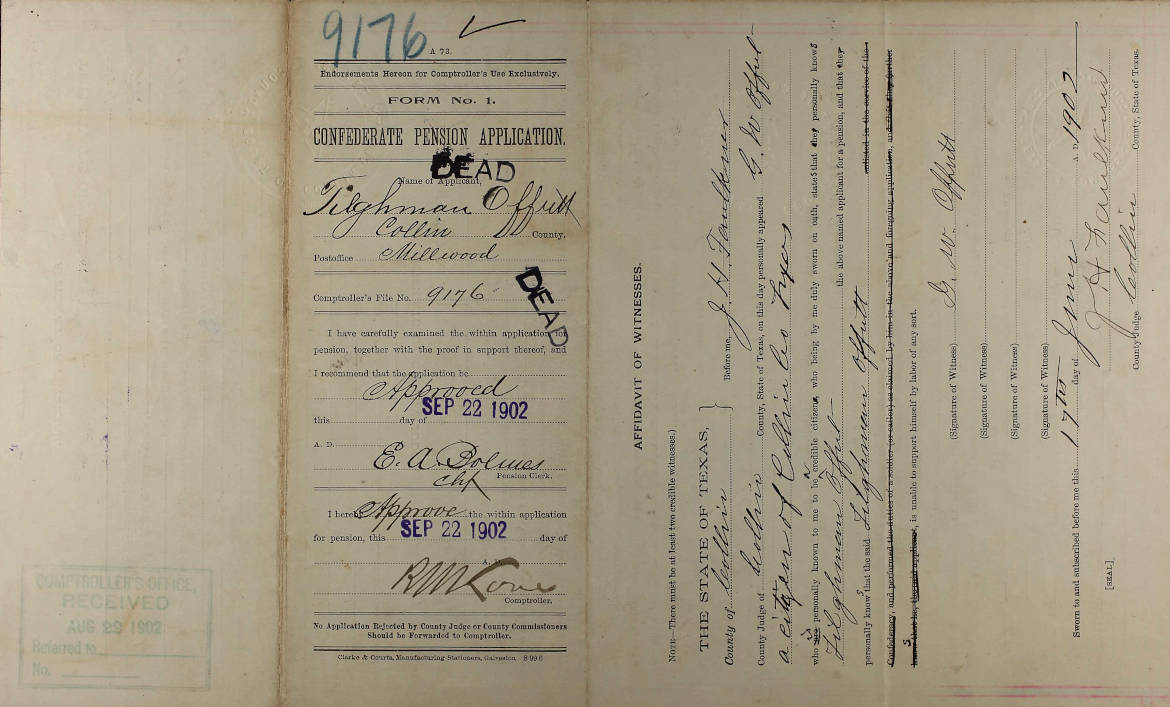 9176
A 73.
Endorsements Hereon for Comptroller's Use Exclusively.
FORM No. 1.
CONFEDERATE PENSION APPLICATION.
DEAD
Name of Applicant,
Tilghman Offutt
Collin County.
Postoffice Millwood
Comptroller's File No. 9176
DEAD
I have carefully examined the within application for
pension, together with the proof in support thereof, and
I recommend that the application be
Approved
this SEP 22 1902 day of
A. D.
E. A. Bolmes
Pension Clerk.
Chf
I hereby Approve the within application
for pension, this SEP 22 1902 day of
A. D.
R M Love
Comptroller.
No Application Rejected by County Judge or County Commissioners
Should be Forwarded to Comptroller.
Clarke & Courts, Manufacturing Stationers, Galveston 8996
COMPTROLLER'S OFFICE,
RECEIVED
AUG 29 1902
Referred to
No.
AFFIDAVIT OF WITNESSES.
NOTE—There must be at least two credible witnesses.)
THE STATE OF TEXAS,
County of Collin } Before me, J. H. Faulkner
County Judge of Collin County, State of Texas, on this day personally appeared G. W Offutt
a citizen of Collin Co Texas
who is personally known to me to be a credible citizen, who being by me duly sworn on oath, states that he personally knows
Tilghman Offutt the above named applicant for a pension, and that they
personally knows that the said Tilghman Offutt enlisted in the service of the
Confederacy, and performed the duties of a soldier (or sailor) as claimed by him in the above and foregoing application, and that they further
knows that he, the said applicant, is unable to support himself by labor of any sort.
(Signature of Witness) G. W. Offutt
(Signature of Witness)
(Signature of Witness)
(Signature of Witness)
Sworn to and subscribed before me this 17th day of June A. D. 1902
[SEAL] J H Faulkner
County Judge Collin County, State of Texas.